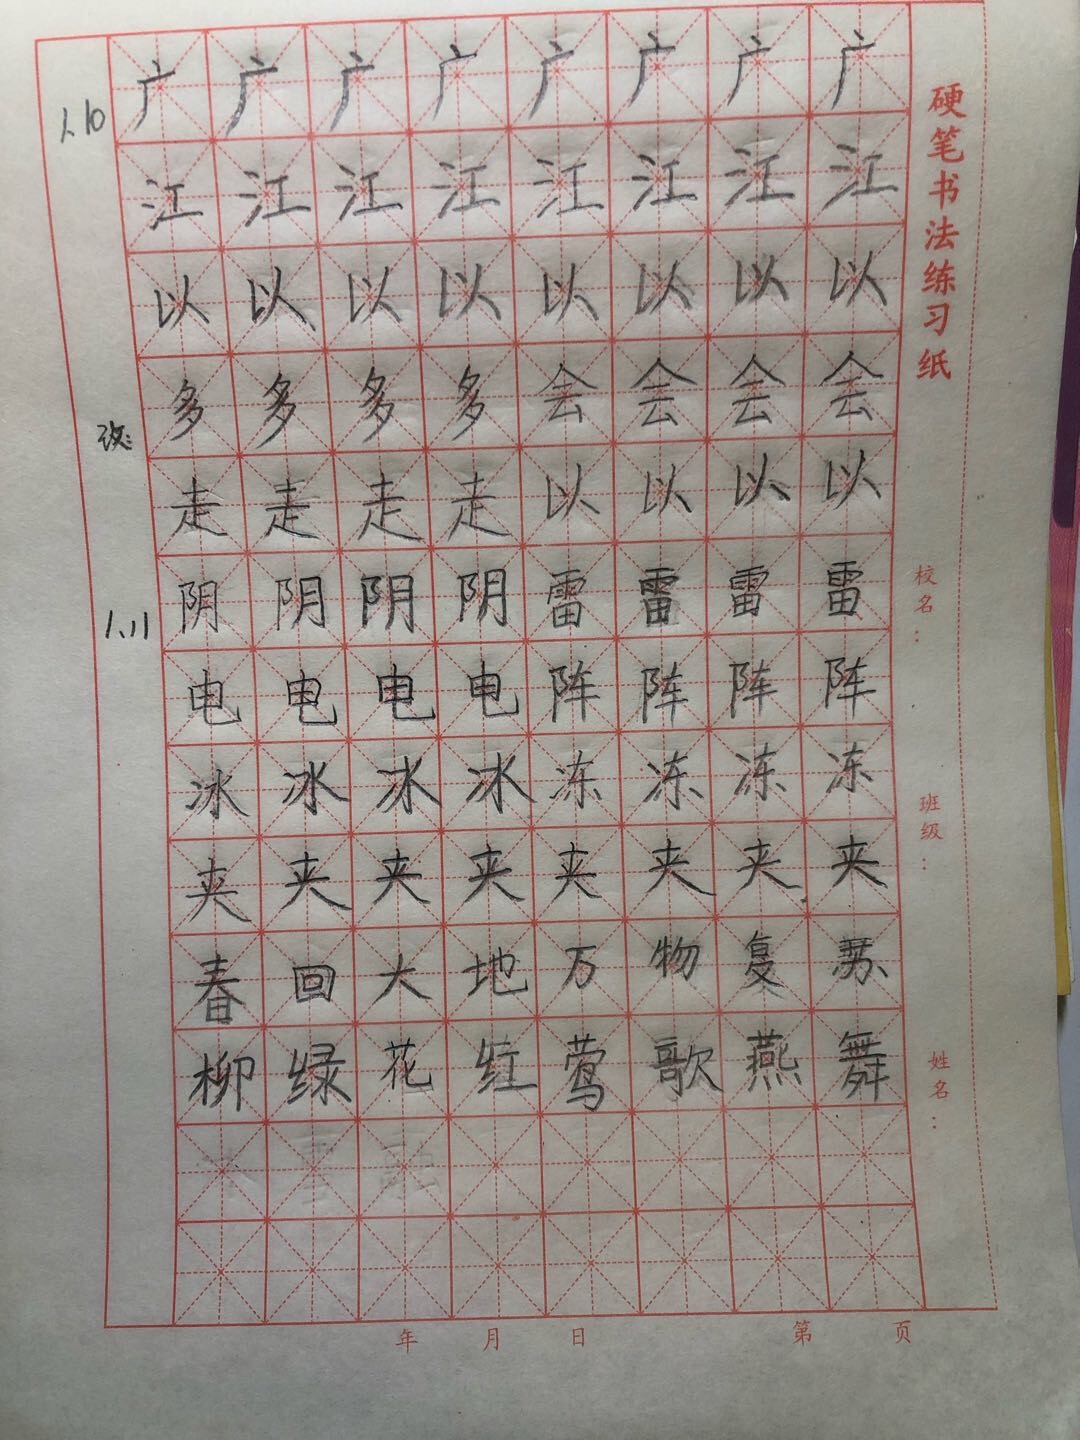 硬笔书法练习纸
1.10
广广广广广广广广
江江江江江江江江
以以以以以以以以
多多多多会会会会
改:
走走走走以以以以
1.11
阴阴阴阴雷雷雷雷
电电电电阵阵阵阵
冰冰冰冰冻冻冻冻
夹夹夹夹夹夹夹夹
春回大地万物复苏
柳绿花红莺歌燕舞
校名：
班级：
姓名：
年 月 日 第 页